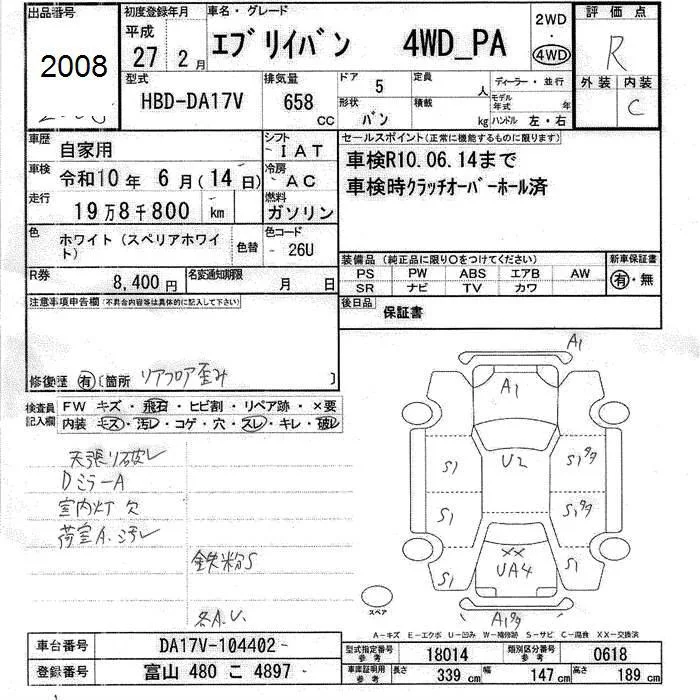 出品番号
2008
初度登録年月
平成
27 2月
車名・グレード
エブリイバン 4WD_PA
2WD
・
4WD
評価点
R
外装 内装
C
型式
HBD-DA17V
排気量
658 cc
ドア 5
形状 バン
定員 人
積載 kg
ディーラー・並行
モデル年式 年
ハンドル 左・右
車歴 自家用
車検 令和10年 6月(14日)
走行 19万8千800 km
シフト
IAT
冷房
AC
燃料
ガソリン
セールスポイント(正常に機能するものに限ります)
車検R10.06.14まで
車検時クラッチオーバーホール済
色 ホワイト(スペリアホワイト)
色替
色コード
26U
R券 8,400円
名変通知期限 月 日
装備品(純正品に限り○をつけてください)
PS PW ABS エアB AW
SR ナビ TV カワ
新車保証書
有・無
後日品 保証書
注意事項申告欄(不具合内容等は具体的に記入して下さい)
修復歴 有〔箇所 リアフロア歪み 〕
検査員記入欄
FW キズ・飛石・ヒビ割・リペア跡・×要
内装 キズ・汚レ・コゲ・穴・スレ・キレ・破レ
天張リ破レ
DミラーA
室内灯欠
荷室A.汚レ
鉄粉S
各A.U.
A1
A1
U2
S1
S1
S1
XX
UA4
S1
A1
スペア
A-キズ E-エクボ U-凹み W-補修跡 S-サビ C-腐食 XX-交換済
車台番号 DA17V-104402
登録番号 富山 480 こ 4897
型式指定番号 参考 18014
類別区分番号 参考 0618
車庫証明用 参考 長さ 339cm 幅 147cm 高さ 189cm